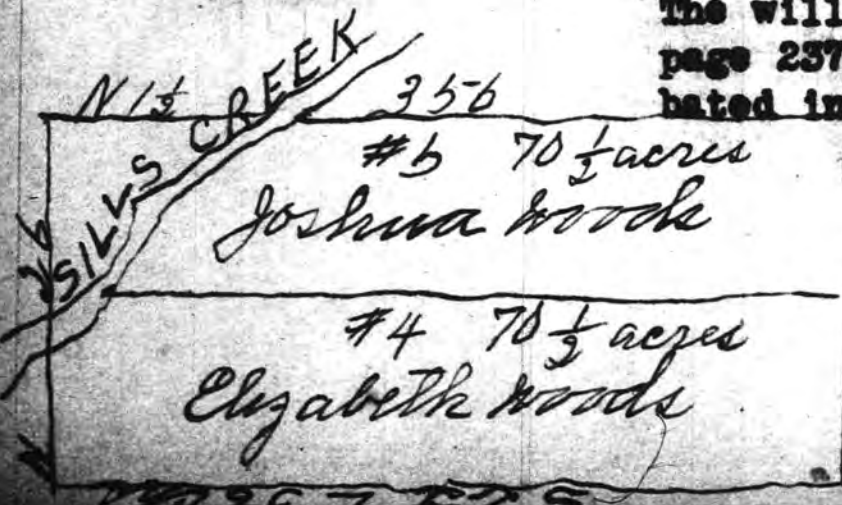 The will
page 237
bated in
N 1½ 356
SILLS CREEK
#5 70 ½ acres
Joshua Woods
#4 70 ½ acres
Elizabeth Woods